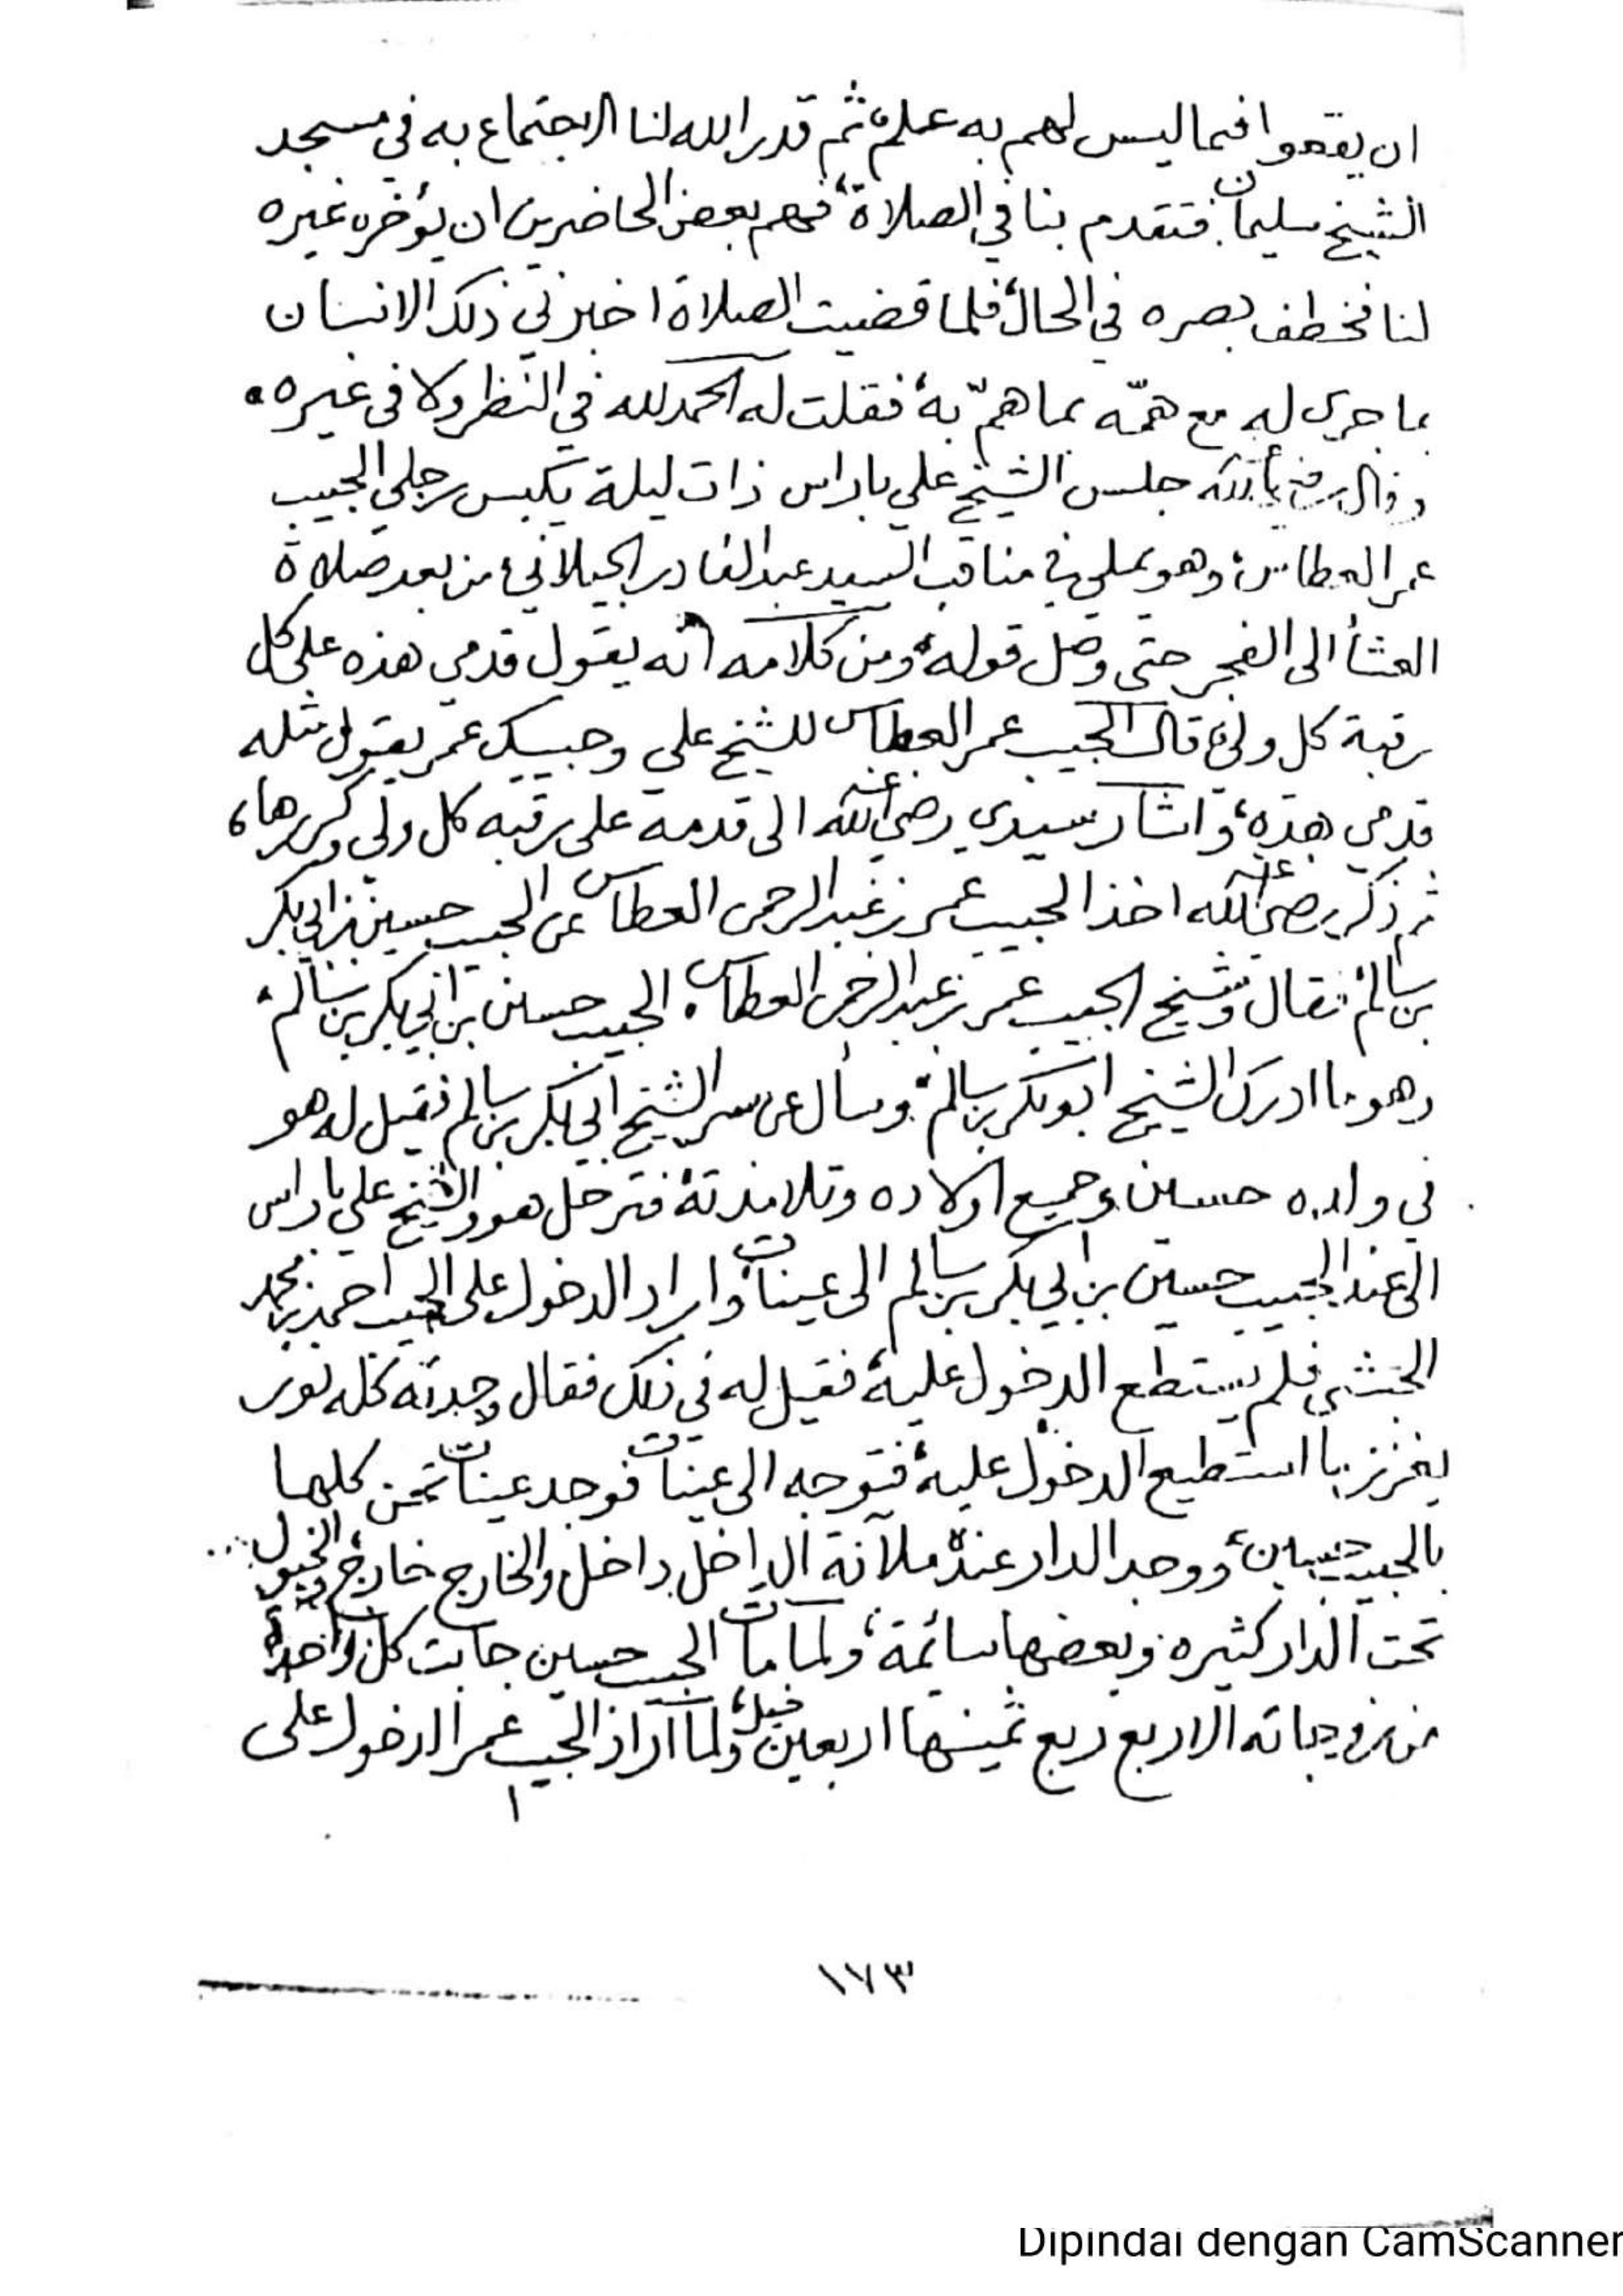 ان يقعوا فيما ليس لهم به علم، ثم قدر الله لنا الاجتماع به في مسجد
الشيخ سليمان فتقدم بنا في الصلاة، فهم بعض الحاضرين ان يؤخره غيره
لنا فخطف بصره في الحال، فلما قضيت الصلاة اخبرني ذلك الانسان
بما جرى له مع همّه بما همّ به، فقلت له الحمد لله في النظر ولا في غيره.
وقال رضي الله جلس الشيخ علي باراس ذات ليلة يكبس رجلي الحبيب
عمر العطاس، وهو يملي في مناقب السيد عبد القادر الجيلاني من بعد صلاة
العشأ الى الفجر حتى وصل قوله، ومن كلامه انه يقول قدمي هذه على كل
رقبة كل ولي، قال الحبيب عمر العطاس للشيخ علي وحبيبك عمر يقول مثله
قدمي هذه، واشار سيدي رضي الله عنه الى قدمه على رقبه كل ولي وكررها،
ثم ذكر رضي الله عنه اخذ الحبيب عمر بن عبد الرحمن العطاس عن الحبيب حسين بن ابي بكر
بن سالم، فقال وشيخ الحبيب عمر بن عبد الرحمن العطاس، الحبيب حسين بن ابي بكر بن سالم،
وهو ما ادرك الشيخ ابو بكر بن سالم، وسأل عن سر الشيخ ابي بكر بن سالم فقيل له هو
في ولده حسين وجميع اولاده وتلامذته، فترحل هو والشيخ علي باراس
الى عند الحبيب حسين بن ابي بكر بن سالم الى عينات، واراد الدخول على الحبيب احمد بن محمد
الحبشي فلم يستطع الدخول عليه، فقيل له في ذلك فقال وجدته كله نور
يغزز ما استطيع الدخول عليه، فتوجه الى عينات فوجد عينات تحن كلها
بالحبيب حسين، ووجد الدار عنده ملآنة الداخل داخل والخارج خارج، والخيول
تحت الدار كثيره وبعضها سائمة، ولما مات الحبيب حسين جابت كل واحدة
من زوجاته الاربع ربع ثمينها اربعين خيل، ولما اراد الحبيب عمر الدخول على
١٧٣
Dipindai dengan CamScanner